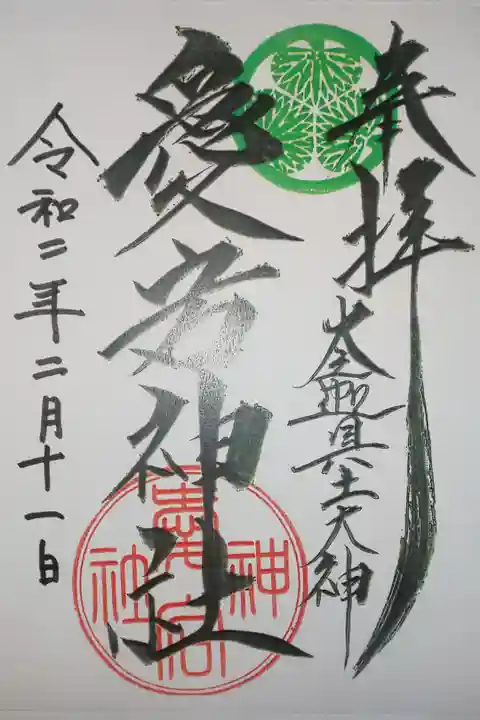 奉拝
具土大神
愛宕神社
愛宕神社
令和二年二月十一日